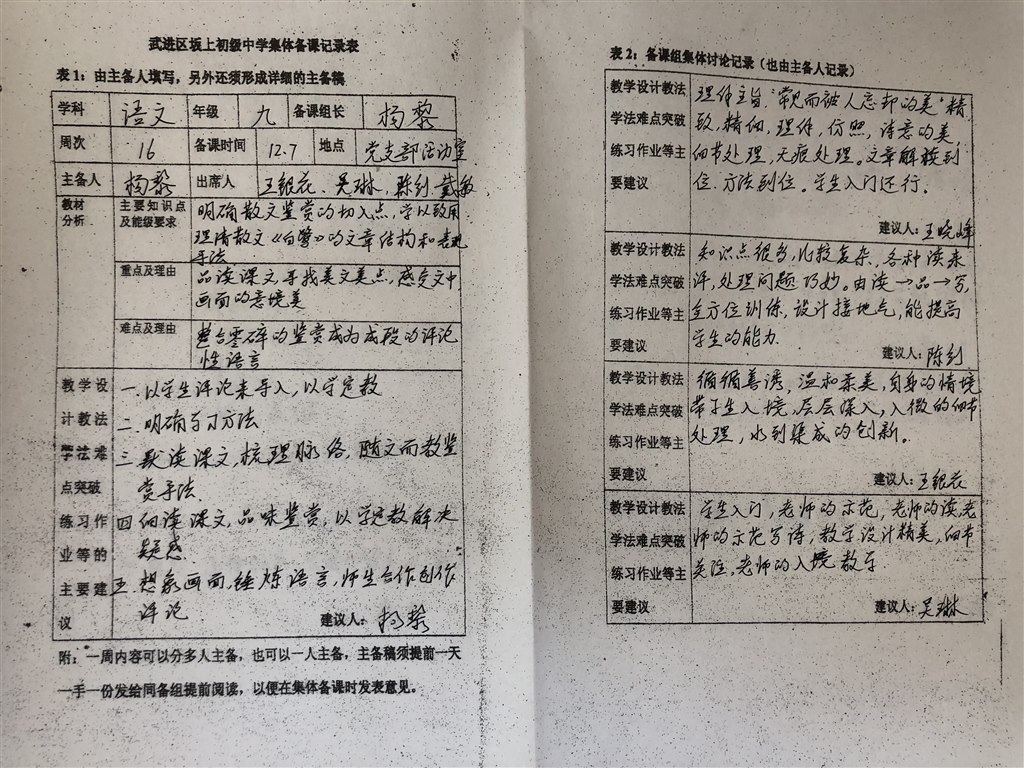 武进区坂上初级中学集体备课记录表
表1：由主备人填写，另外还须形成详细的主备稿
学科 语文 年级 九 备课组长 杨黎
周次 16 备课时间 12.7 地点 党支部活动室
主备人 杨黎 出席人 王银花、吴琳、陈钊、戴敏
教材分析 主要知识点及能级要求 明确散文鉴赏的切入点，学以致用
理清散文《白鹭》的文章结构和表现
手法
重点及理由 品读课文，寻找美文美点，感受文中
画面的意境美
难点及理由 整合零碎的鉴赏成为成段的评论
性语言
教学设计教法学法难点突破练习作业等的主要建议
一.以学生评论来导入，以学定教
二.明确学习方法
三.默读课文，梳理脉络，随文而教鉴
赏手法.
四.细读课文，品味鉴赏，以学定教解决
疑惑.
五.想象画面，锤炼语言，师生合作创作
评论
建议人：杨黎
附：一周内容可以分多人主备，也可以一人主备，主备稿须提前一天
一手一份发给同备组提前阅读，以便在集体备课时发表意见。
表2：备课组集体讨论记录（也由主备人记录）
教学设计教法学法难点突破练习作业等主要建议
理解主旨"常见而被人忘却的美"精
致，精细，理解，仿照，诗意的美，
细节处理，无痕处理。文章解读到
位.方法到位。学生入门还行.
建议人：王晓峰
教学设计教法学法难点突破练习作业等主要建议
知识点很多，比较复杂，各种读来
评，处理问题巧妙。由读→品→写，
全方位训练，设计接地气，能提高
学生的能力.
建议人：陈钊
教学设计教法学法难点突破练习作业等主要建议
循循善诱，温和柔美，自身的情境
带学生入境，层层深入，入微的细节
处理，水到渠成的创新。
建议人：王银花
教学设计教法学法难点突破练习作业等主要建议
学生入门，老师的示范，老师的读，老
师的示范写诗，教学设计精美，细节
老师的入境教学.
建议人：吴琳